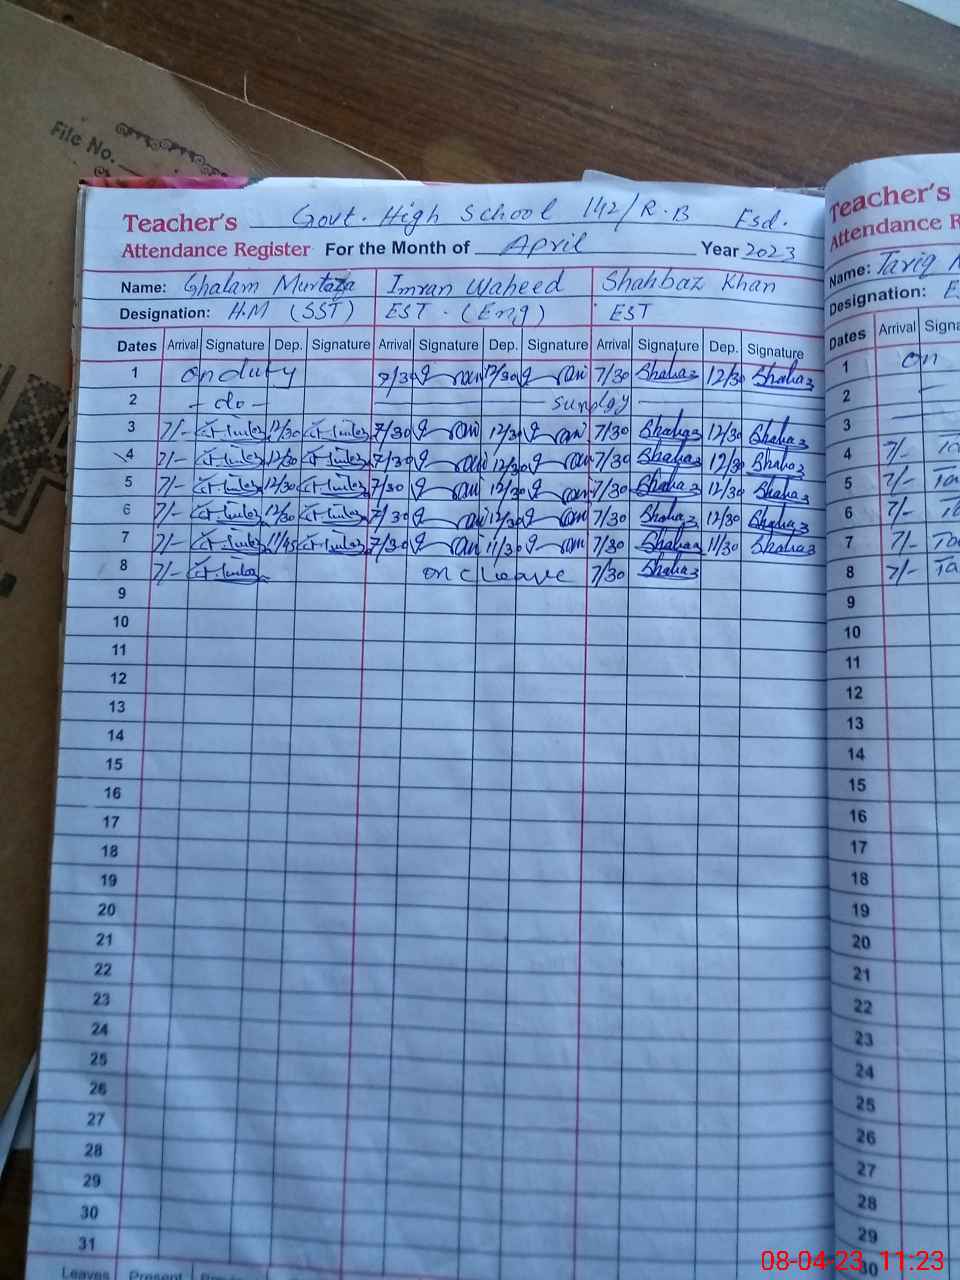 File No.
Teacher's Govt. High School 142/R.B Fsd.
Attendance Register For the Month of April Year 2023
Name: Ghalam Murtaza Imran Waheed Shahbaz Khan
Designation: H.M (SST) EST. (Eng) EST
Dates Arrival Signature Dep. Signature Arrival Signature Dep. Signature Arrival Signature Dep. Signature
1 on duty 7/30 12/30 7/30 Shahaz 12/30 Shahaz
2 - do - sunday
3 7/- 12/30 7/30 12/30 7/30 Shahaz 12/30 Shahaz
4 7/- 12/30 7/30 12/30 7/30 Shahaz 12/30 Shahaz
5 7/- 12/30 7/30 12/30 7/30 Shahaz 12/30 Shahaz
6 7/- 12/30 7/30 12/30 7/30 Shahaz 12/30 Shahaz
7 7/- 11/45 7/30 11/30 7/30 Shahaz 11/30 Shahaz
8 7/- on c leave 7/30 Shahaz
9
10
11
12
13
14
15
16
17
18
19
20
21
22
23
24
25
26
27
28
29
30
31
Leaves Present
Teacher's
Attendance R
Name: Tariq
Designation: E
Dates Arrival Signa
1 on
2
3
4 7/-
5 7/- Ta
6 7/-
7 7/-
8 7/- Ta
9
10
11
12
13
14
15
16
17
18
19
20
21
22
23
24
25
26
27
28
29
30
08-04-23 11:23